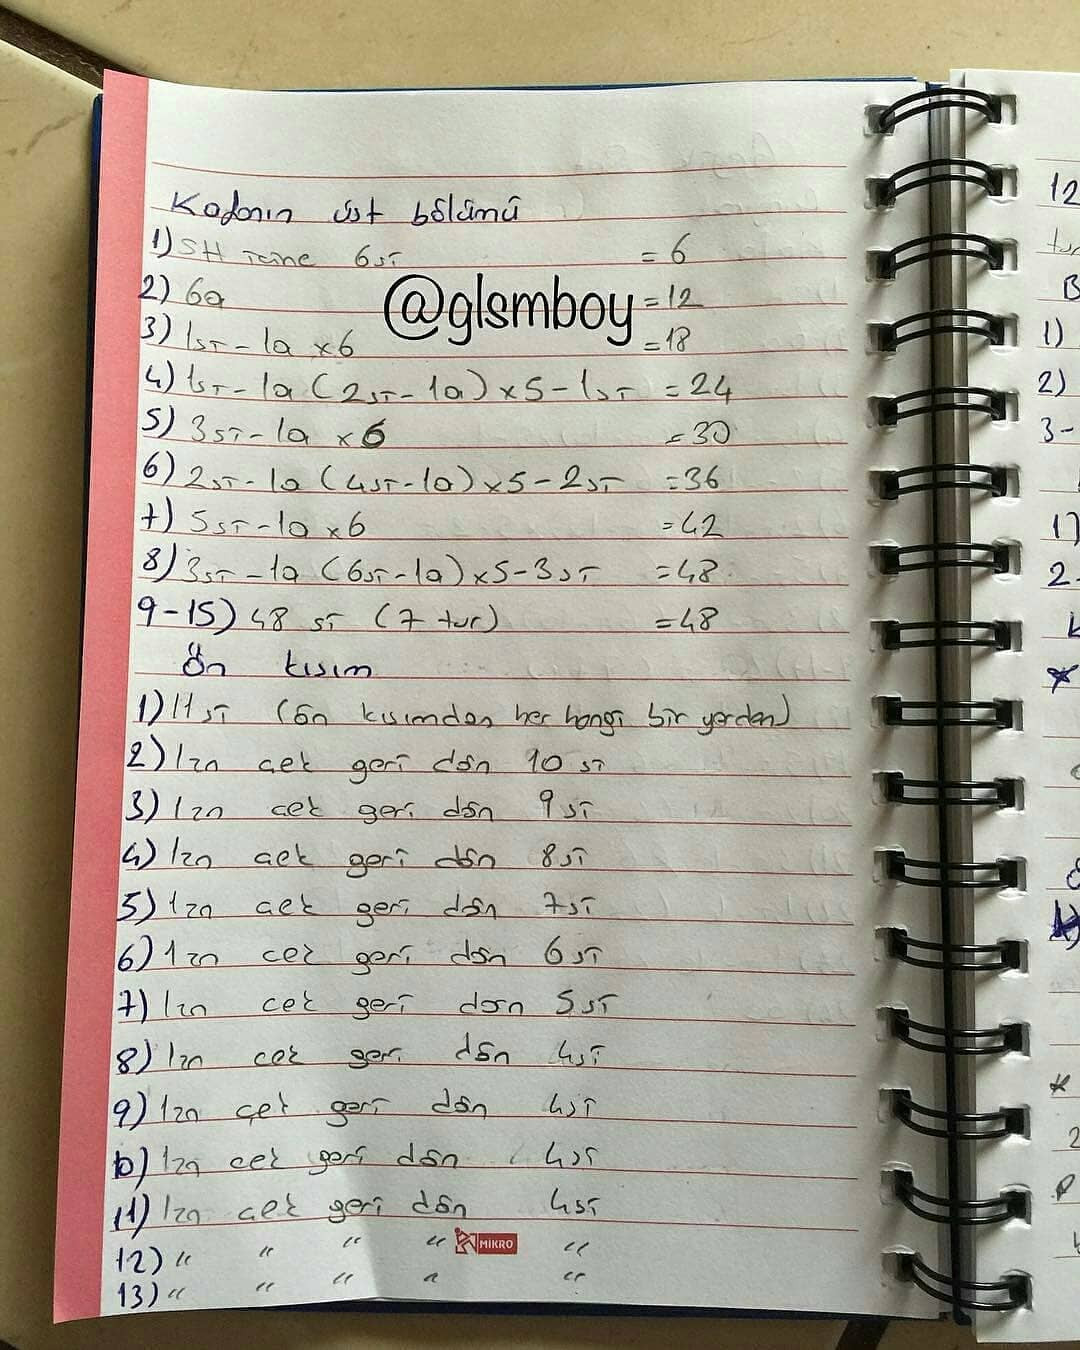 Kafanın üst bölümü
1) SH içine 6sı = 6
2) 6a = 12
@glsmboy
3) 1sı - 1a x6 = 18
4) 1sı - 1a (2sı - 1a) x 5 - 1sı = 24
5) 3sı - 1a x 6 = 30
6) 2sı - 1a (4sı - 1a) x 5 - 2sı = 36
7) 5sı - 1a x 6 = 42
8) 3sı - 1a (6sı - 1a) x 5 - 3sı = 48
9-15) 48 sı (7 tur) = 48
Ön kısım
1) 11 sı (ön kısımdan her hangi bir yerden)
2) 1zn çek geri dön 10 sı
3) 1zn çek geri dön 9sı
4) 1zn çek geri dön 8sı
5) 1zn çek geri dön 7sı
6) 1zn çek geri dön 6sı
7) 1zn çek geri dön 5sı
8) 1zn çek geri dön 4sı
9) 1zn çek geri dön 4sı
10) 1zn çek geri dön 4sı
11) 1zn çek geri dön 4sı
12) " " " " "
MİKRO
13) " " " " "
12
tur
B
1)
2)
3-
1)
2-